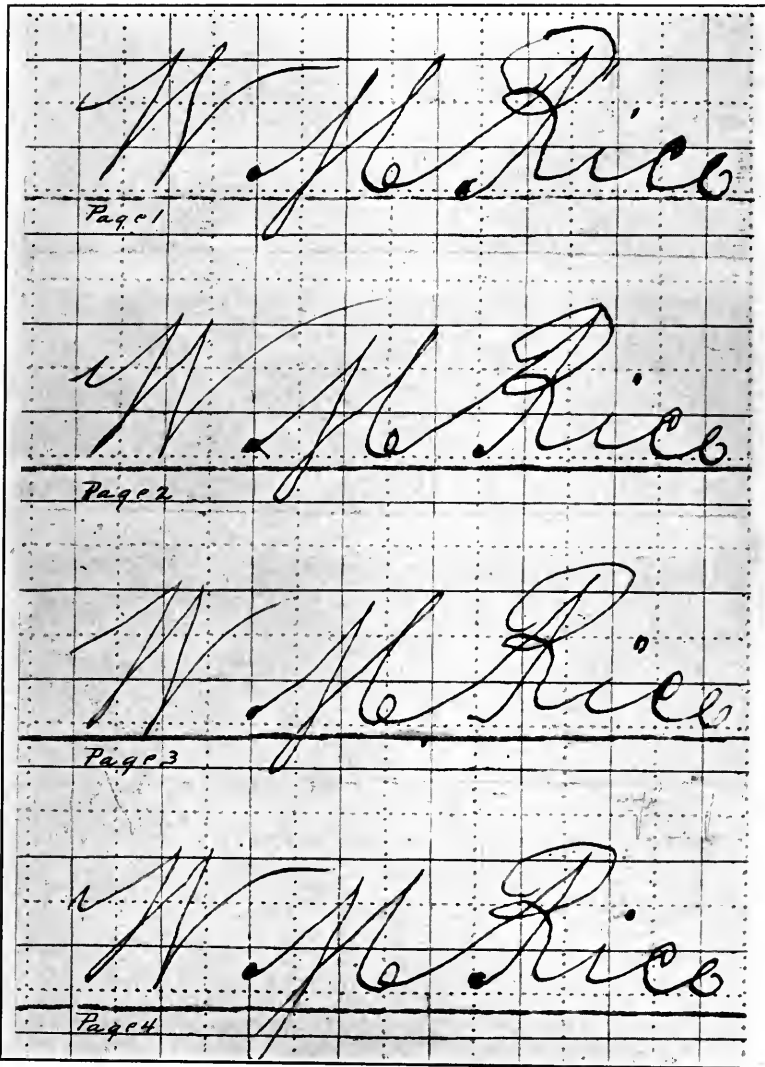 W. M. Rice
Page 1
W. M. Rice
Page 2
W. M. Rice
Page 3
W. M. Rice
Page 4